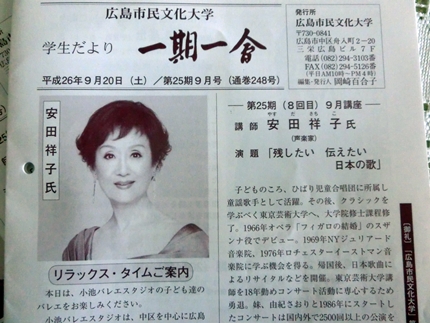 広島市民文化大学
学生だより 一期一會
平成26年9月20日（土）／第25期9月号（通巻248号）
発行所
広島市民文化大学
〒730-0841
広島市中区舟入町2−20
三栄広島ビル7F
電話(082)294-3103番
FAX(082)294-5126番
(平日AM10時〜PM4時)
編集・発行人 岡崎百合子
安田祥子氏
リラックス・タイムご案内
本日は、小池バレエスタジオの子ども達の
バレエをお楽しみください。
小池バレエスタジオは、中区を中心に広島
第25期（8回目）9月講座
講師 安田祥子氏
やすだ さちこ
（声楽家）
演題「残したい 伝えたい
日本の歌」
子どものころ、ひばり児童合唱団に所属し
童謡歌手として活躍。その後、クラシックを
学ぶべく東京芸術大学へ、大学院修士課程修
了。1966年オペラ「フィガロの結婚」のスザ
ンナ役でデビュー。1969年NYジュリアード
音楽院、1976年ロチェスターイーストマン音
楽院に学ぶ機会を得る。帰国後、日本歌曲に
よるリサイタルなどを開催。東京芸術大学講
師を18年勤めコンサート活動に専心するため
勇退。妹、由紀さおりと1986年にスタートし
たコンサートは国内外で2500回以上の公演を
【御礼】「広島市民文化大学」